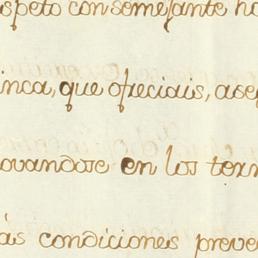 speto con semejante ha
inca, que ofreciais, ase
ovandose en los term
ás condiciones preve